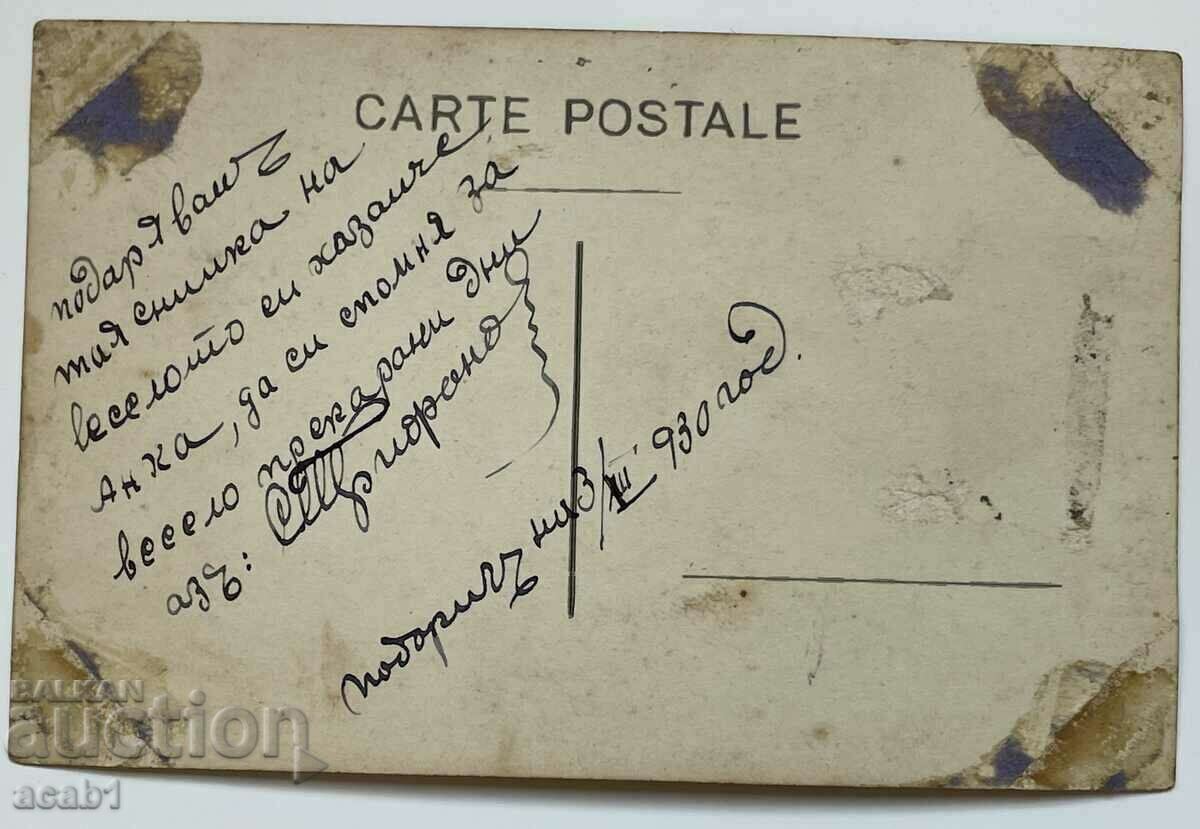 CARTE POSTALE
подарявамъ
тая снимка на
веселото си хазаиче
Анка, да си спомня за
весело прекарани дни
азъ:
подарилъ на 3/III 930 год.
BALKAN
auction
acab1